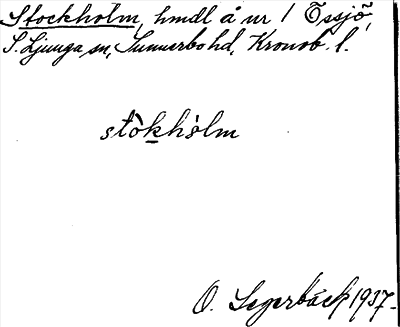 Stockholm, hmdl å nr 1 Össjö,
S. Ljunga sn, Sunnerbo hd, Kronob. l.
stòkhòlm
O. Segerbäck 1937.